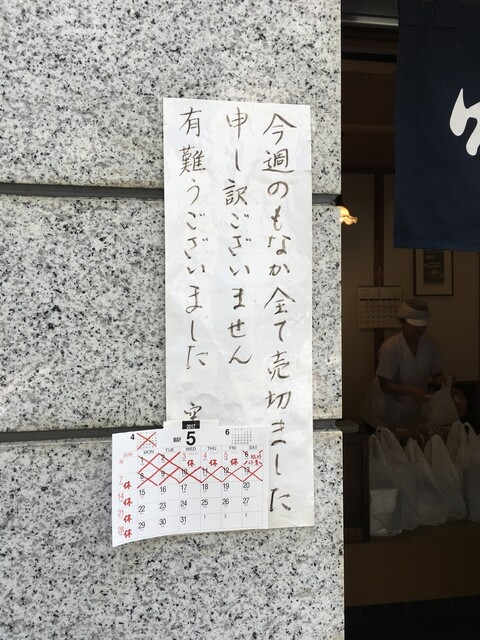 今週のもなか全て売切ました
申し訳ございません
有難うございました
空
4
2017
MAY 5
6
MON TUE WED THU FRI SAT
1 2 3 4 5 6
休 休 休 臨時休業
7 休 8 9 10 11 12 13
14 休 15 16 17 18 19 20
21 休 22 23 24 25 26 27
28 休 29 30 31 1 2 3